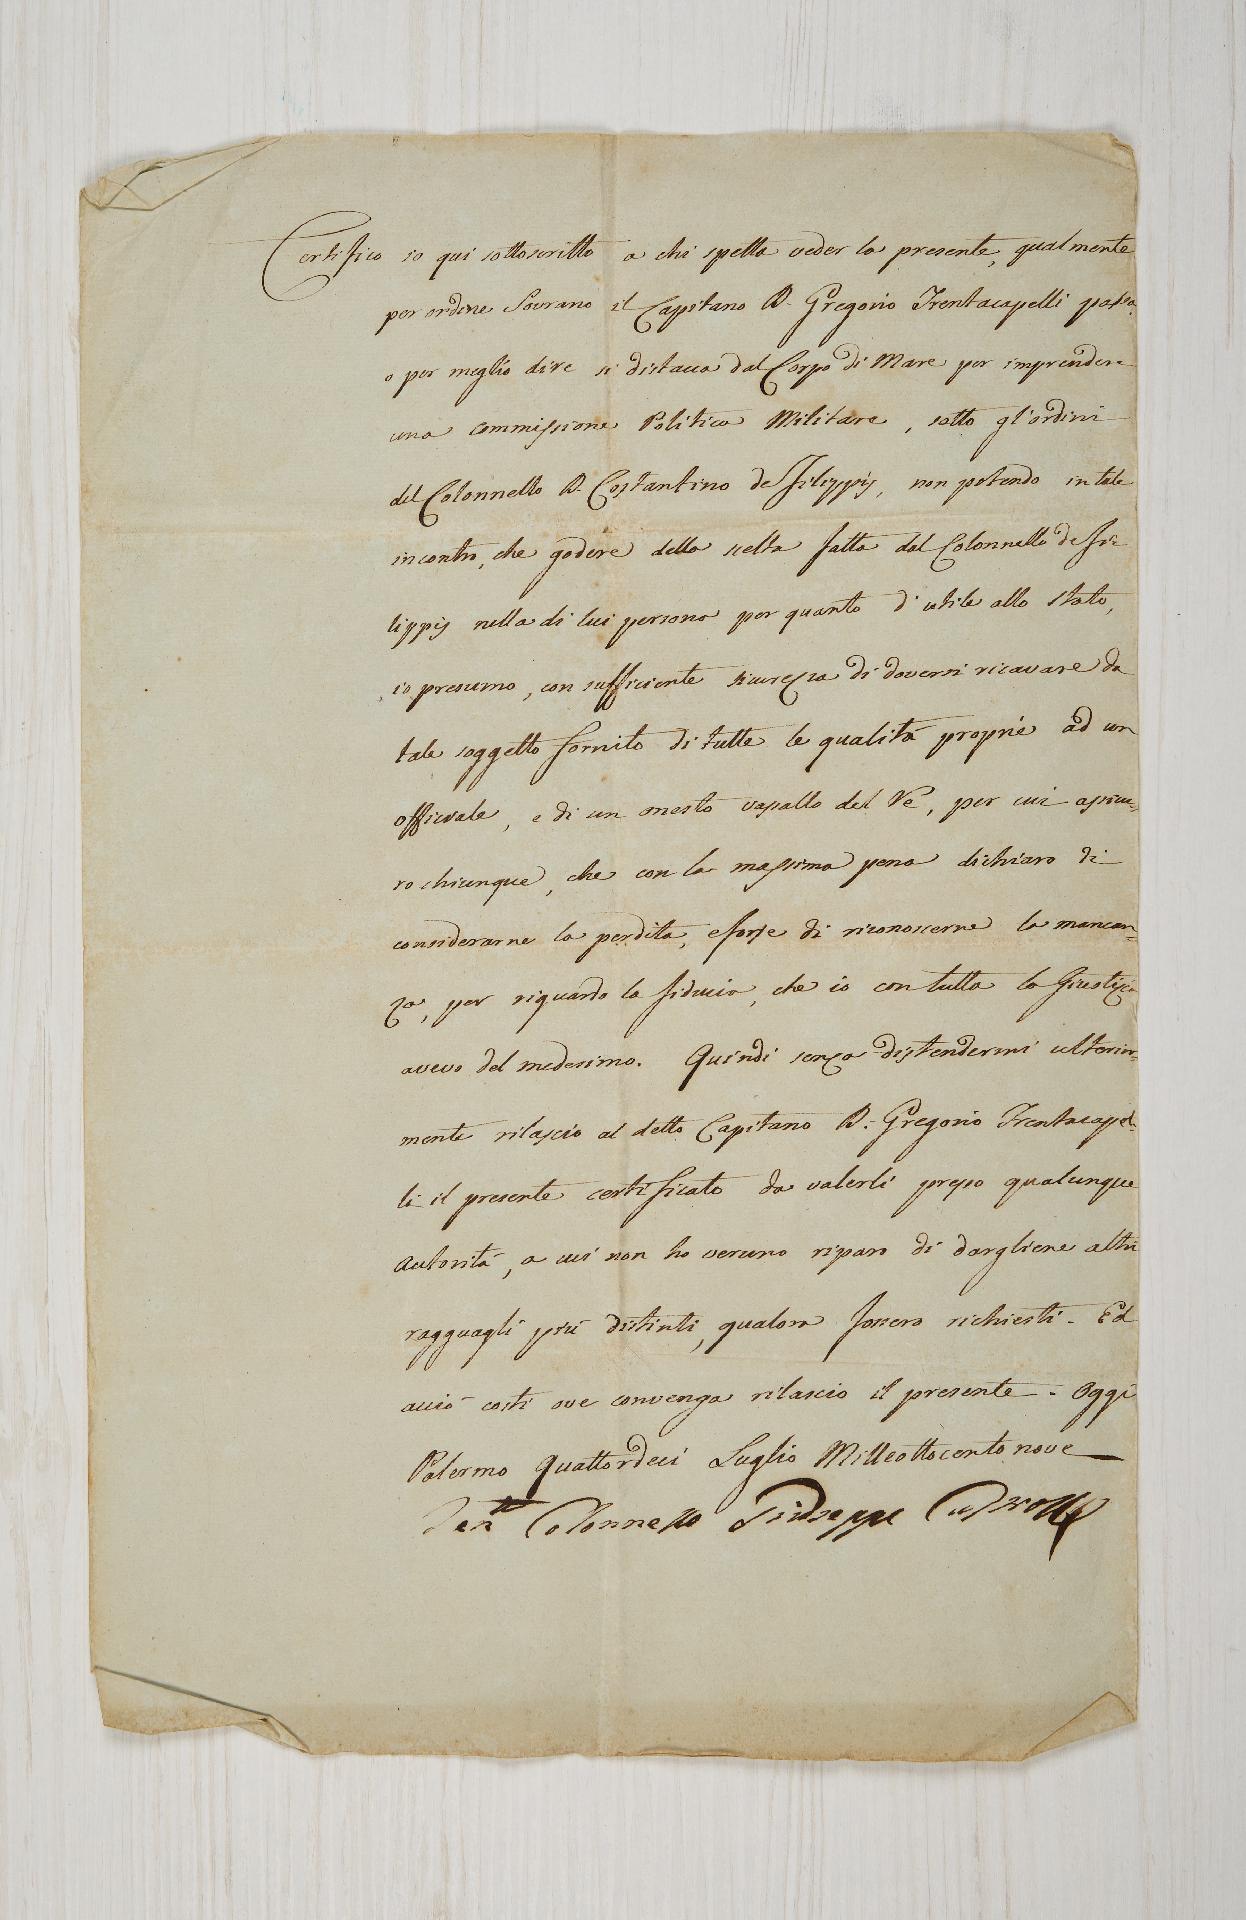 Certifico io qui sottoscritto a chi spetta veder la presente, qualmente
per ordine Sovrano il Capitano D. Gregorio Trentacapelli passa,
o per meglio dire si distacca dal Corpo di Mare per imprendere
una commissione Politica Militare, sotto gl'ordini
del Colonnello D. Costantino de Filippis, non potendo in tale
incontro, che godere della scelta fatta dal Colonnello de Fi-
lippis nella di lui persona per quanto d'utile allo Stato,
io presumo, con sufficiente sicurezza di doversi ricavare da
tale soggetto fornito di tutte le qualità proprie ad un
officiale, e di un onesto vassallo del Re, per cui assicu-
ro chiunque, che con la massima pena dichiaro di
considerarne la perdita, e forse di riconoscerne la mancan-
za, per riguardo la fiducia, che io con tutta la Giustizia
avevo del medesimo. Quindi senza distendermi ulterior-
mente rilascio al detto Capitano D. Gregorio Trentacapel-
li il presente certificato da valerli presso qualunque
autorità, a cui non ho veruno riparo di dargliene altri
ragguagli più distinti, qualora fossero richiesti. Ed
acciò costi ove convenga rilascio il presente. Oggi
Palermo Quattordeci Luglio Milleottocento nove
Ten.te Colonnello Giuseppe